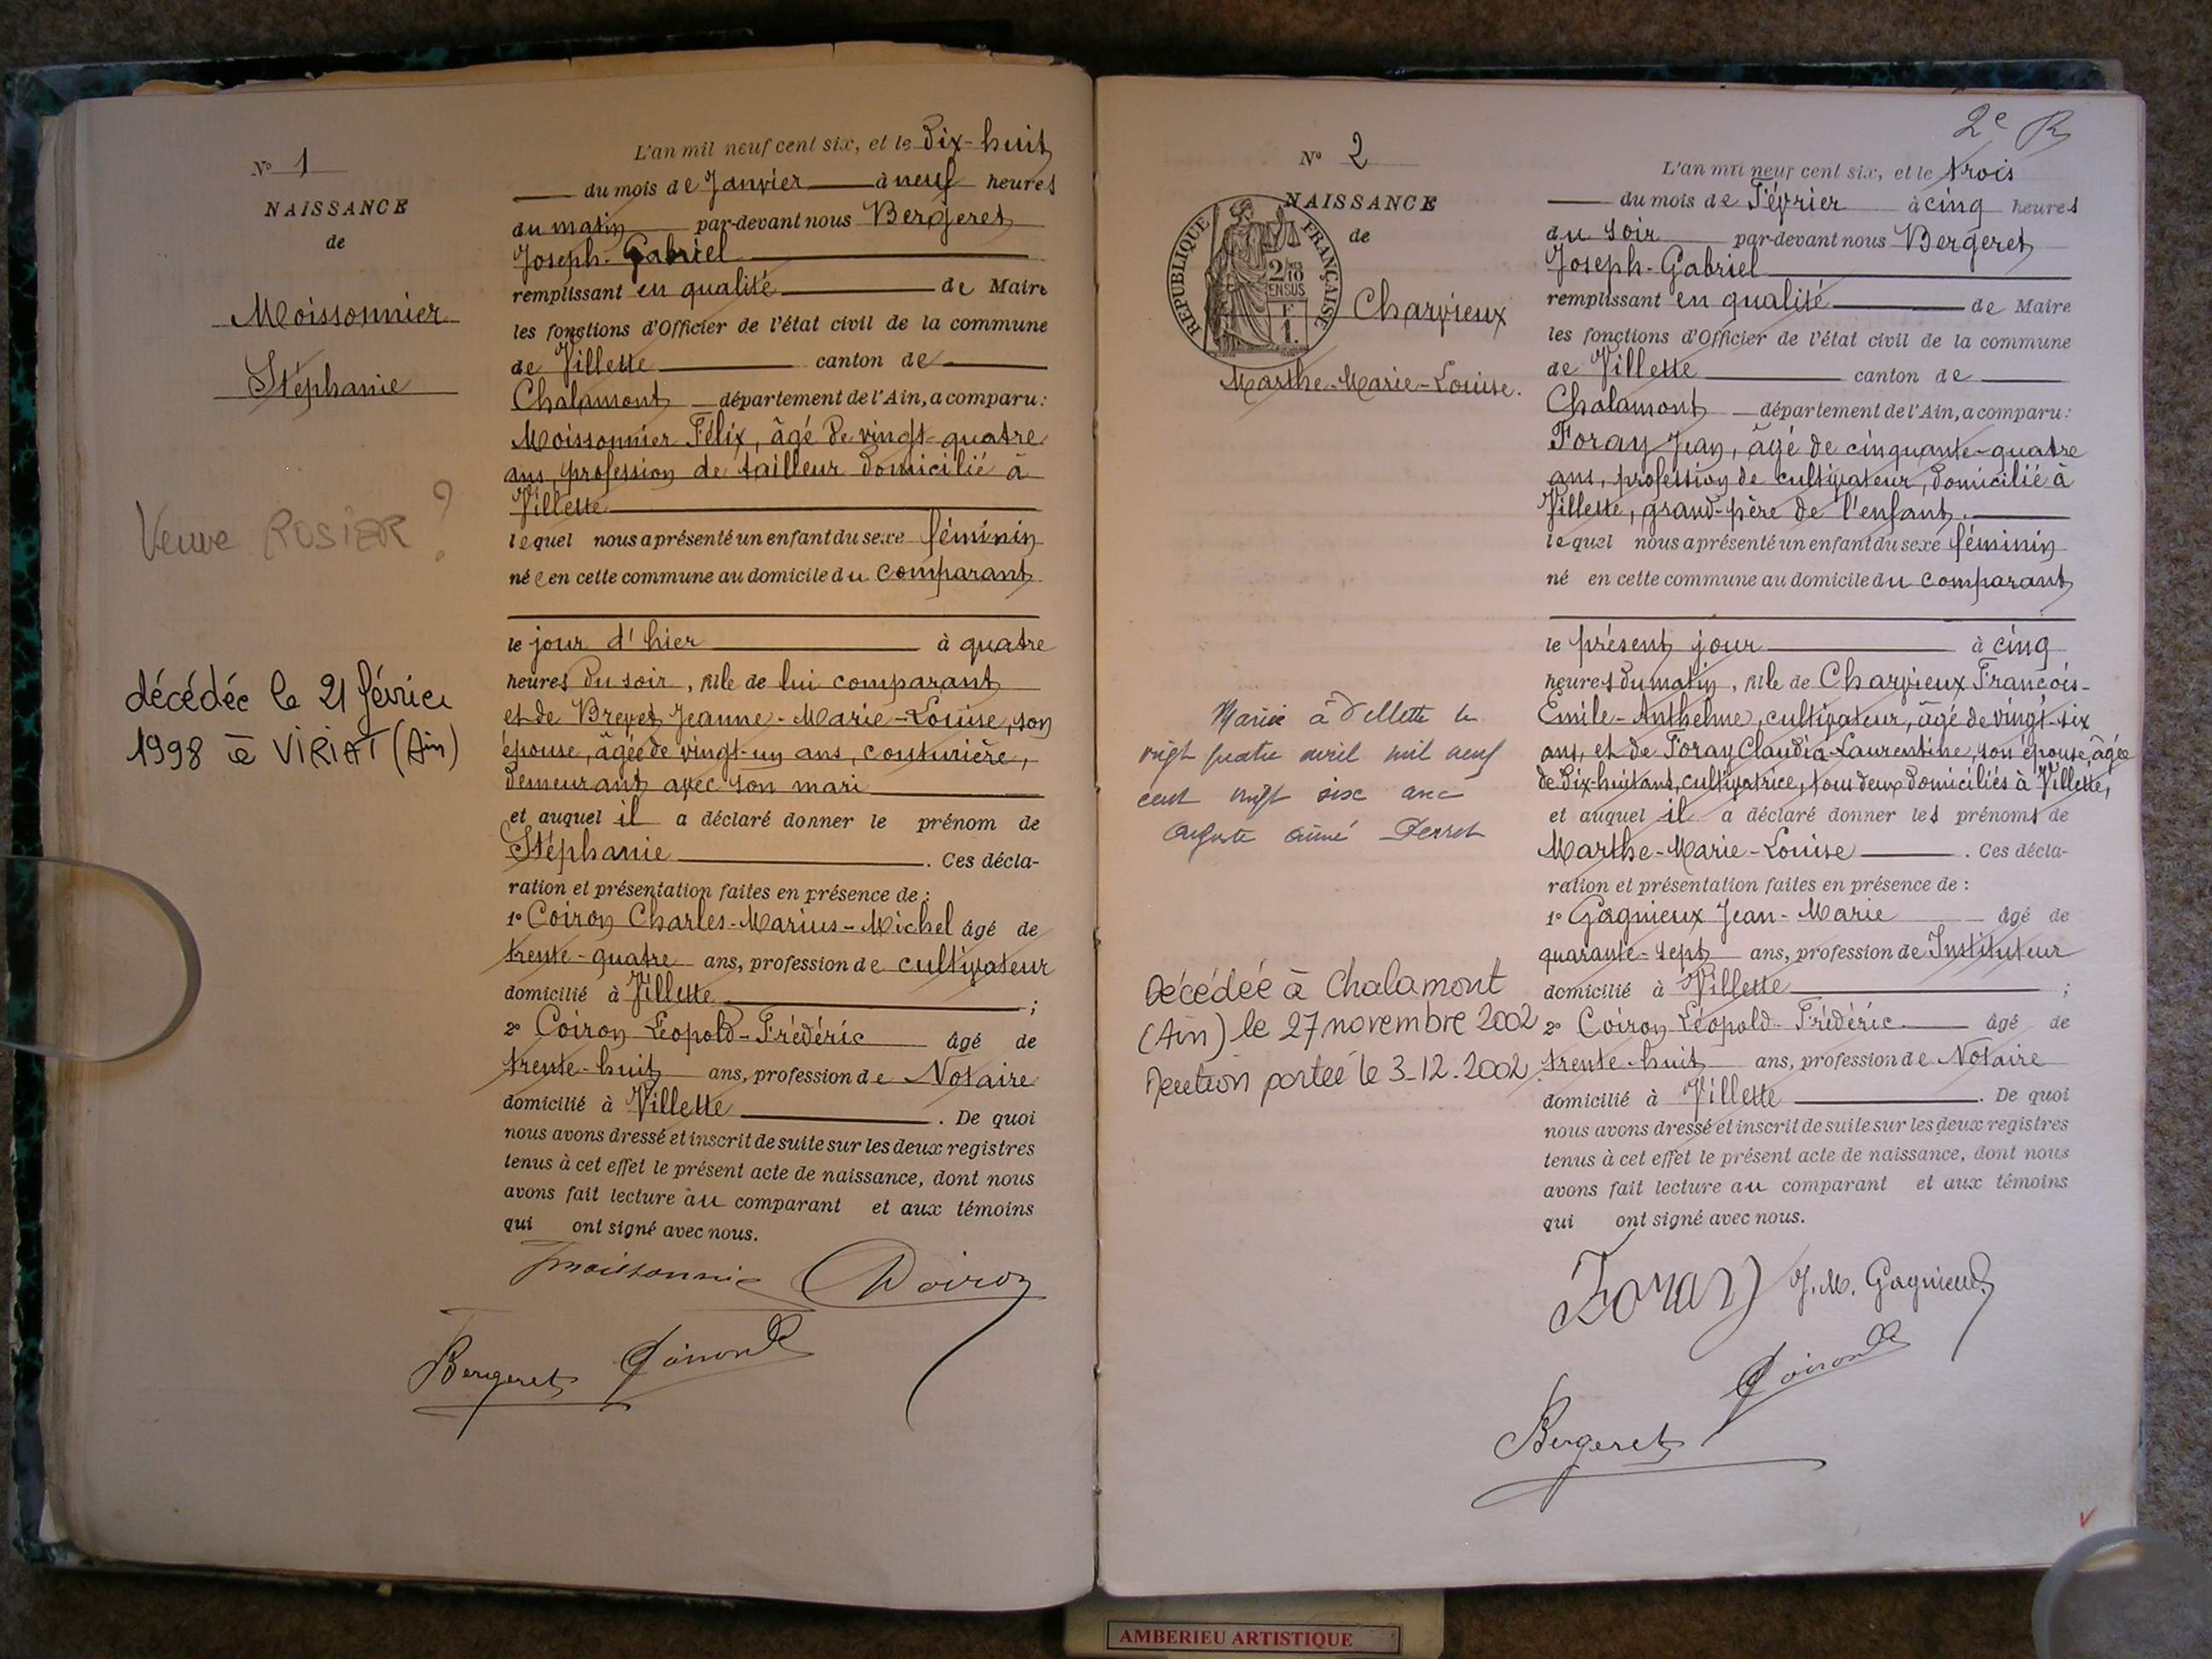 N° 1
NAISSANCE
de
Moissonnier
Stéphanie
Veuve ROSIER ?
décédée le 21 février
1998 à VIRIAT (Ain)
L'an mil neuf cent six, et le Dix-huit
du mois de Janvier à neuf heures
du matin par-devant nous Bergeret
Joseph-Gabriel
remplissant en qualité de Maire
les fonctions d'Officier de l'état civil de la commune
de Villette canton de
Chalamont département de l'Ain, a comparu :
Moissonnier Félix, âgé de vingt-quatre
ans, profession de tailleur domicilié à
Villette
lequel nous a présenté un enfant du sexe féminin
née en cette commune au domicile du comparant
le jour d'hier à quatre
heures du soir, fille de lui comparant
et de Brevet Jeanne-Marie-Louise, son
épouse, âgée de vingt-un ans, couturière,
demeurant avec son mari
et auquel il a déclaré donner le prénom de
Stéphanie . Ces décla-
ration et présentation faites en présence de :
1° Coiron Charles-Marius-Michel âgé de
trente-quatre ans, profession de cultivateur
domicilié à Villette ;
2° Coiron Léopold-Frédéric âgé de
trente-huit ans, profession de Notaire
domicilié à Villette . De quoi
nous avons dressé et inscrit de suite sur les deux registres
tenus à cet effet le présent acte de naissance, dont nous
avons fait lecture au comparant et aux témoins
qui ont signé avec nous.
Moissonnier Coiron
Bergeret Coiron
2e R
N° 2
NAISSANCE
de
RÉPUBLIQUE FRANÇAISE
2/10
EN SUS
F
1.
Charvieux
Marthe-Marie-Louise.
Mariée à Villette le
vingt quatre avril mil neuf
cent vingt six avec
Auguste Aimé Perret
Décédée à Chalamont
(Ain) le 27 novembre 2002
Mention portée le 3-12-2002.
L'an mil neuf cent six, et le trois
du mois de Février à cinq heures
du soir par-devant nous Bergeret
Joseph-Gabriel
remplissant en qualité de Maire
les fonctions d'Officier de l'état civil de la commune
de Villette canton de
Chalamont département de l'Ain, a comparu :
Foray Jean, âgé de cinquante-quatre
ans, profession de cultivateur, domicilié à
Villette, grand-père de l'enfant.
lequel nous a présenté un enfant du sexe féminin
né en cette commune au domicile du comparant
le présent jour à cinq
heures du matin, fille de Charvieux François-
Emile-Anthelme, cultivateur, âgé de vingt-six
ans, et de Foray Claudia-Laurentine, son épouse, âgée
de dix-huit ans, cultivatrice, tous deux domiciliés à Villette,
et auquel il a déclaré donner les prénoms de
Marthe-Marie-Louise . Ces décla-
ration et présentation faites en présence de :
1° Gagnieux Jean-Marie âgé de
quarante-sept ans, profession de Instituteur
domicilié à Villette ;
2° Coiron Léopold-Frédéric âgé de
trente-huit ans, profession de Notaire
domicilié à Villette . De quoi
nous avons dressé et inscrit de suite sur les deux registres
tenus à cet effet le présent acte de naissance, dont nous
avons fait lecture au comparant et aux témoins
qui ont signé avec nous.
Foray J. M. Gagnieux
Coiron
Bergeret
AMBERIEU ARTISTIQUE